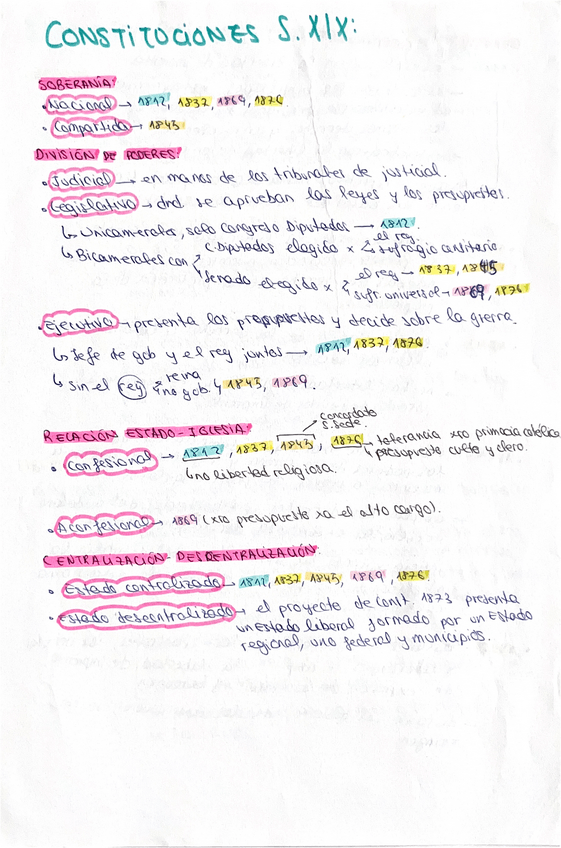 CONSTITUCIONES S. XIX:
SOBERANÍA:
· Nacional → 1812, 1837, 1869, 1876
· Compartida → 1845
DIVISIÓN DE PODERES:
· Judicial → en manos de los tribunales de justicial.
· Legislativo → dnd se aprueban las leyes y los presupuestos.
↳ Unicamerales, solo congreso Diputados → 1812.
↳ Bicamerales con
C. Diputados elegido x el rey. sufragio censitario.
Senado elegido x el rey → 1837, 1845
sufr. universal → 1869, 1876
· Ejecutivo → presenta los presupuestos y decide sobre la gierra.
↳ Jefe de gob y el rey juntos → 1812, 1837, 1876.
↳ sin el rey reina no gob. 1845, 1869.
RELACIÓN ESTADO-IGLESIA:
Concordato S. Sede.
· Confesional → 1812, 1837, 1845, 1876 → tolerancia xro primacia católica
presupuesto culto y clero.
↳ no libertad religiosa.
· Aconfesional → 1869 (xro presupuesto xa el alto cargo).
CENTRALIZACIÓN-DESCENTRALIZACIÓN:
· Estado contralizado → 1812, 1837, 1845, 1869, 1876
· Estado descentralizado → el proyecto de const. 1873 presenta
un estado liberal formado por un Estado
regional, uno federal y municipios.